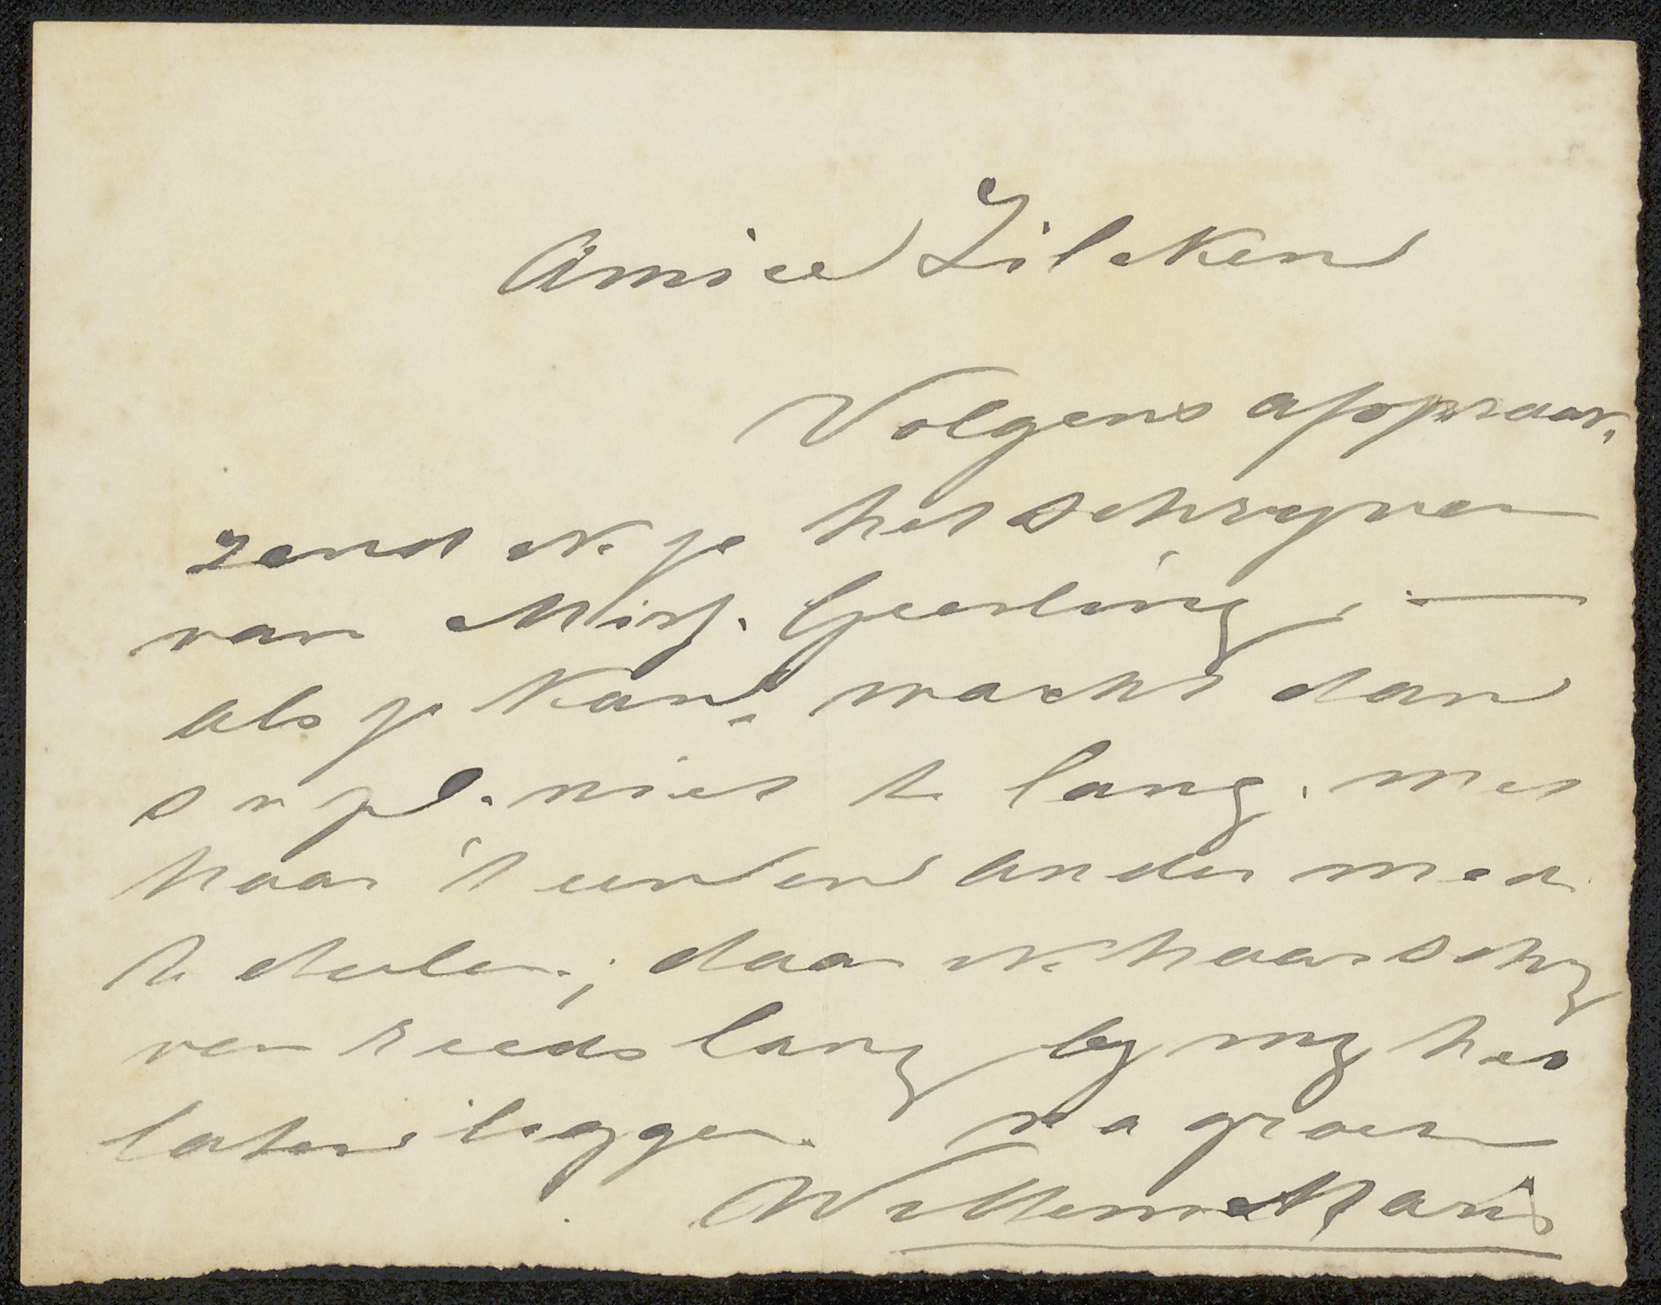 Amice Zilcken
Volgens afspraak,
zend ik je het schryven
van Miss. Geerling, —
als je kan, wacht dan
s v pl. niet te lang. met
haar 't een en ander mede
te deelen; daar ik haar schry
ven reeds lang by my heb
laten liggen. na groet
Willem Maris